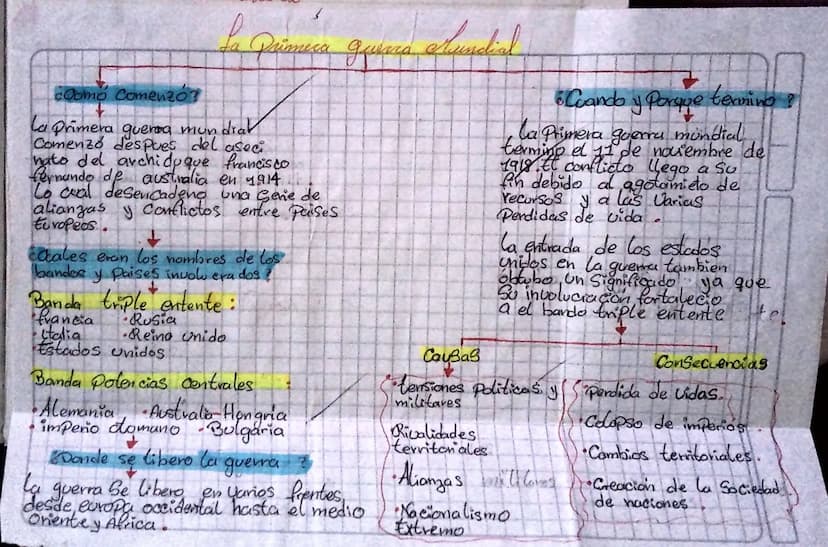 La Primera guerra Mundial
¿Como Comenzó?
La Primera guerra mundial
Comenzó despues del aseci
nato del archiduque francisco
fernando de australia en 1914
Lo cual desencadeno una serie de
alianzas y conflictos entre Paises
Europeos.
¿Cuales eran los nombres de los
bandos y Paises involucrados?
Banda triple entente:
·francia ·Rusia
·italia ·Reino unido
·Estados unidos
Banda Potencias Centrales :
·Alemania ·Australo-Hongria
·imperio otomano ·Bulgaria
¿Donde se libero la guerra?
La guerra Se libero en varios frentes,
desde europa occidental hasta el medio
Oriente y Africa.
¿Cuando y Porque termino?
La Primera guerra mundial
termino el 11 de noviembre de
1918. El conflicto llego a su
fin debido al agotamieto de
recursos y a las varias
Perdidas de vida.
La entrada de los estados
unidos en la guerra tambien
obtubo un significado ya que
Su involucración fortalecio
a el bando triple entente
Causas
·tensiones Politicas y
militares
Rivalidades
territoriales
·Alianzas militares
·Nacionalismo
Extremo
Consecuencias
·Perdida de vidas.
·Colapso de imperios.
·Cambios territoriales.
·Creación de la Sociedad
de naciones.